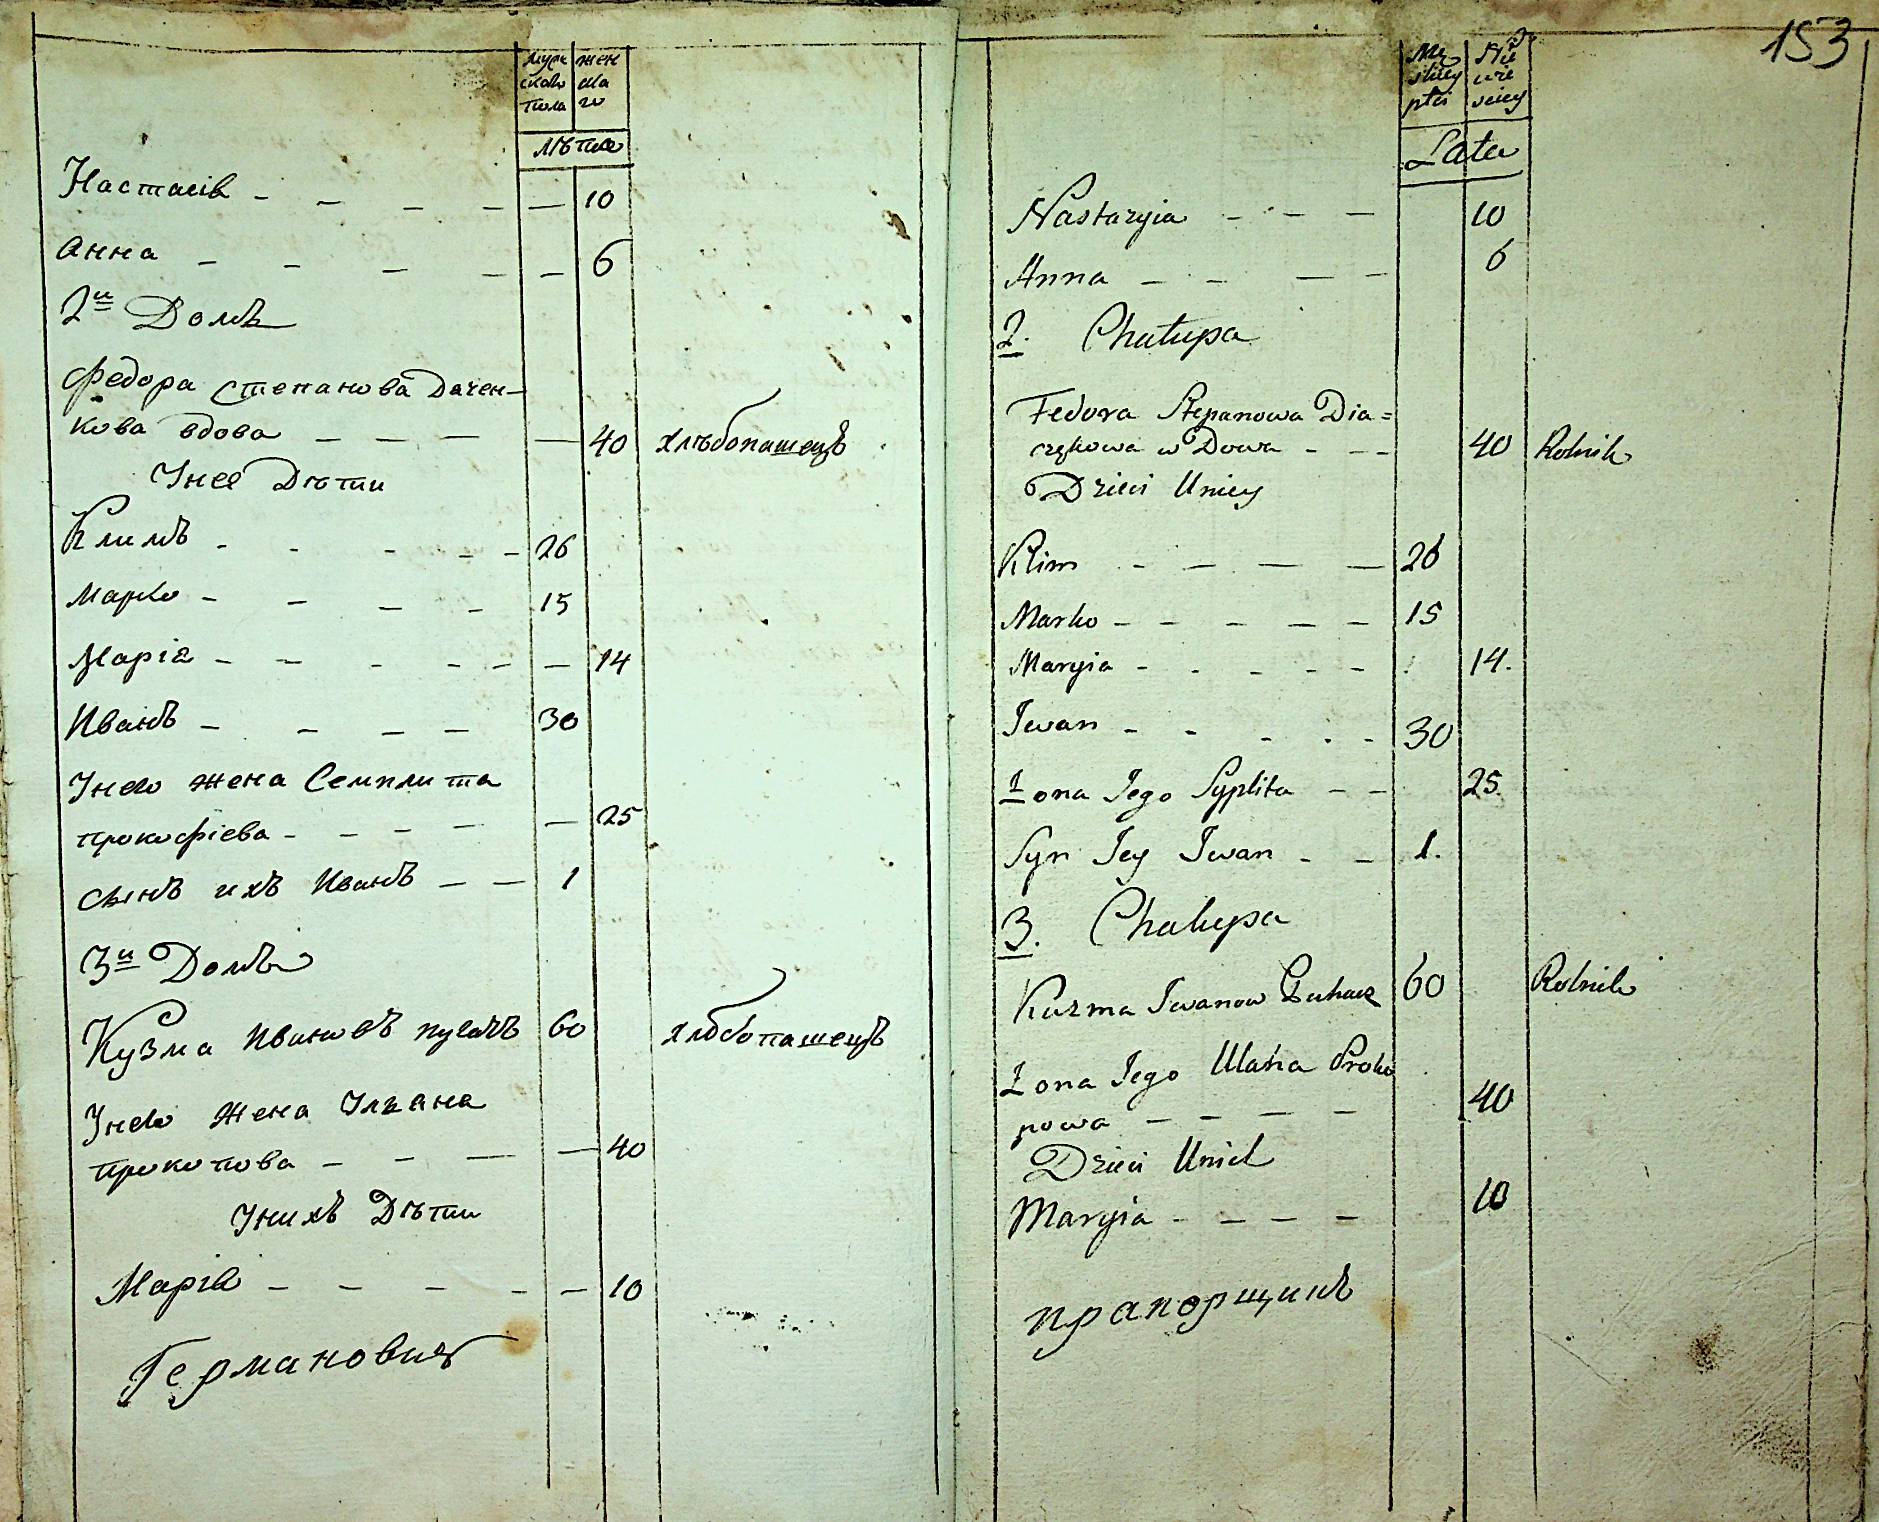 муже
скаго
пола
жен
ска
го
Лѣта
Настасія - - - - - 10
Анна - - - - - 6
2й Домъ
Федора Степанова Дячен-
кова вдова - - - - 40 хлѣбопашецъ
Унее Дѣти
Климъ - - - - - 26
Марко - - - - 15
Марія - - - - - - 14
Иванъ - - - - 30
Унего жена Семплита
прокофіева - - - - - 25
сынъ ихъ Иванъ - - 1
3й Домъ
Кузма Ивановъ пугачъ 60 хлѣбопашецъ
Унего жена Ульяна
прокопова - - - - 40
Унихъ Дѣти
Марія - - - - - 10
Германовичъ
153
Lata
Nastazyia - - - 10
Anna - - - - 6
2. Chałupa
Fedora Stepanowa Dia=
czękowa w Dowa - - - 40 Rolnik
Dzieci Uniey
Klim - - - - 26
Marko - - - - - 15
Maryia - - - - - 14.
Iwan - - - - - 30
Żona Jego Syplita - - 25.
Syn Jey Iwan - - 1.
3. Chałupa
Kuzma Iwanow Puhacz 60 Rolnik
Żona Jego Ulana Proko
powa - - - - 40
Dzieci Unich
Maryia - - - - 10
прапорщикъ